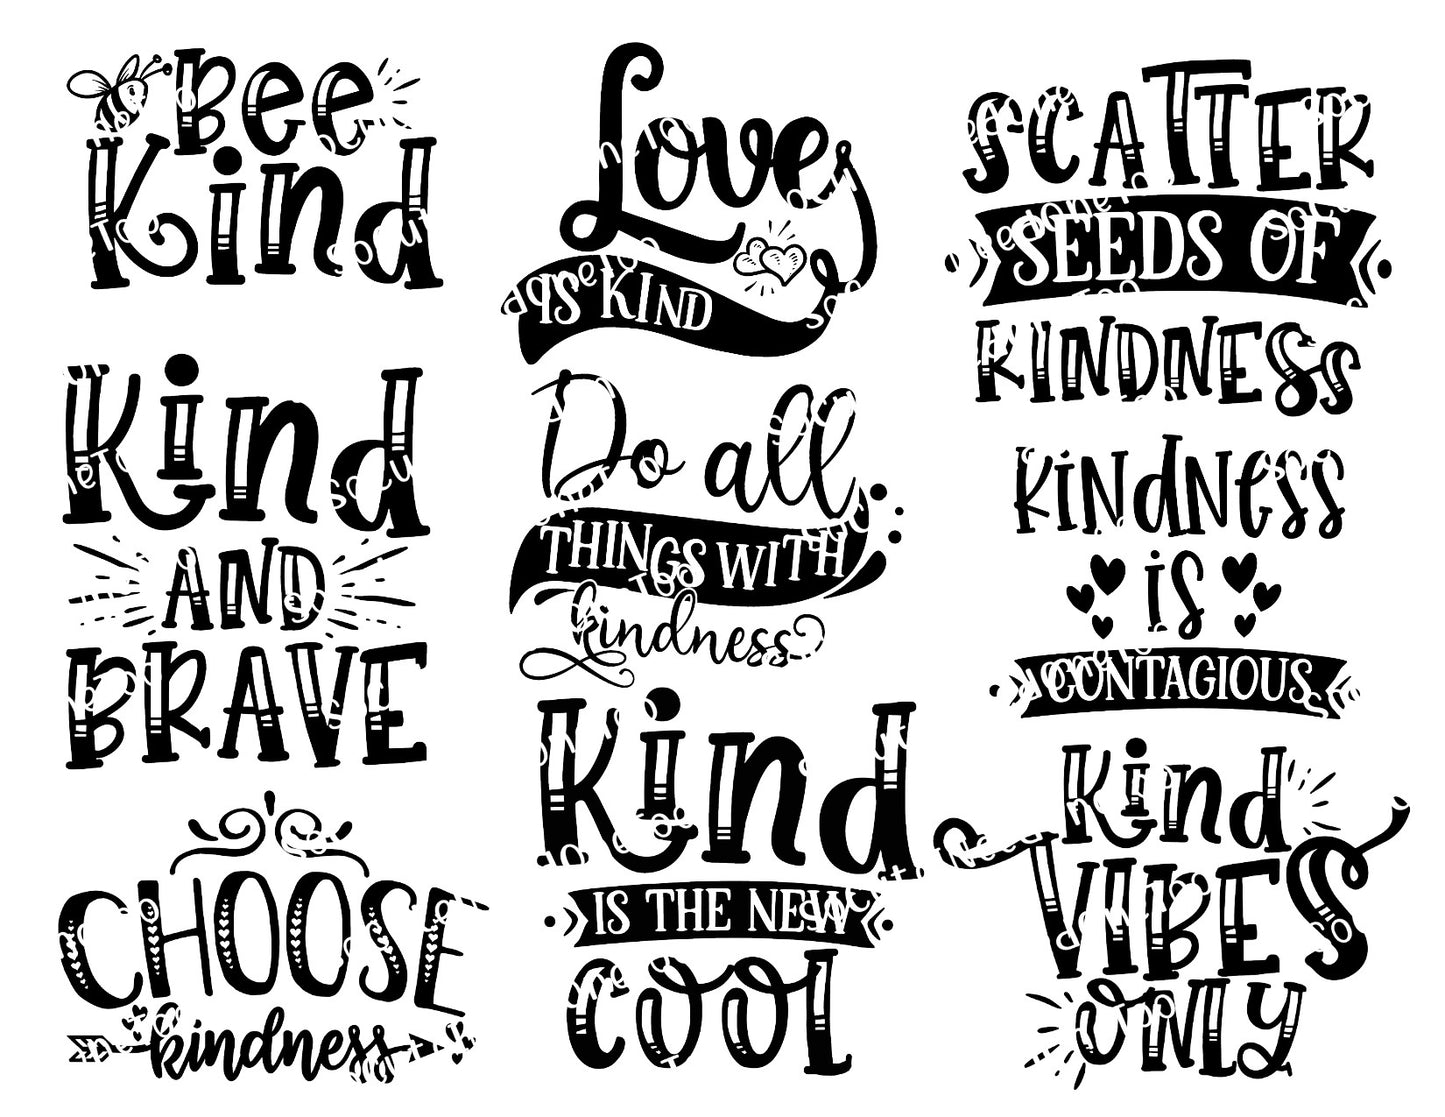 Bee
Kind
Kind
AND
BRAVE
CHOOSE
kindness
Love
IS KIND
Do all
THINGS WITH
kindness
Kind
IS THE NEW
COOL
SCATTER
SEEDS OF
KINDNESS
KINDNESS
is
CONTAGIOUS
Kind
VIBES
ONLY